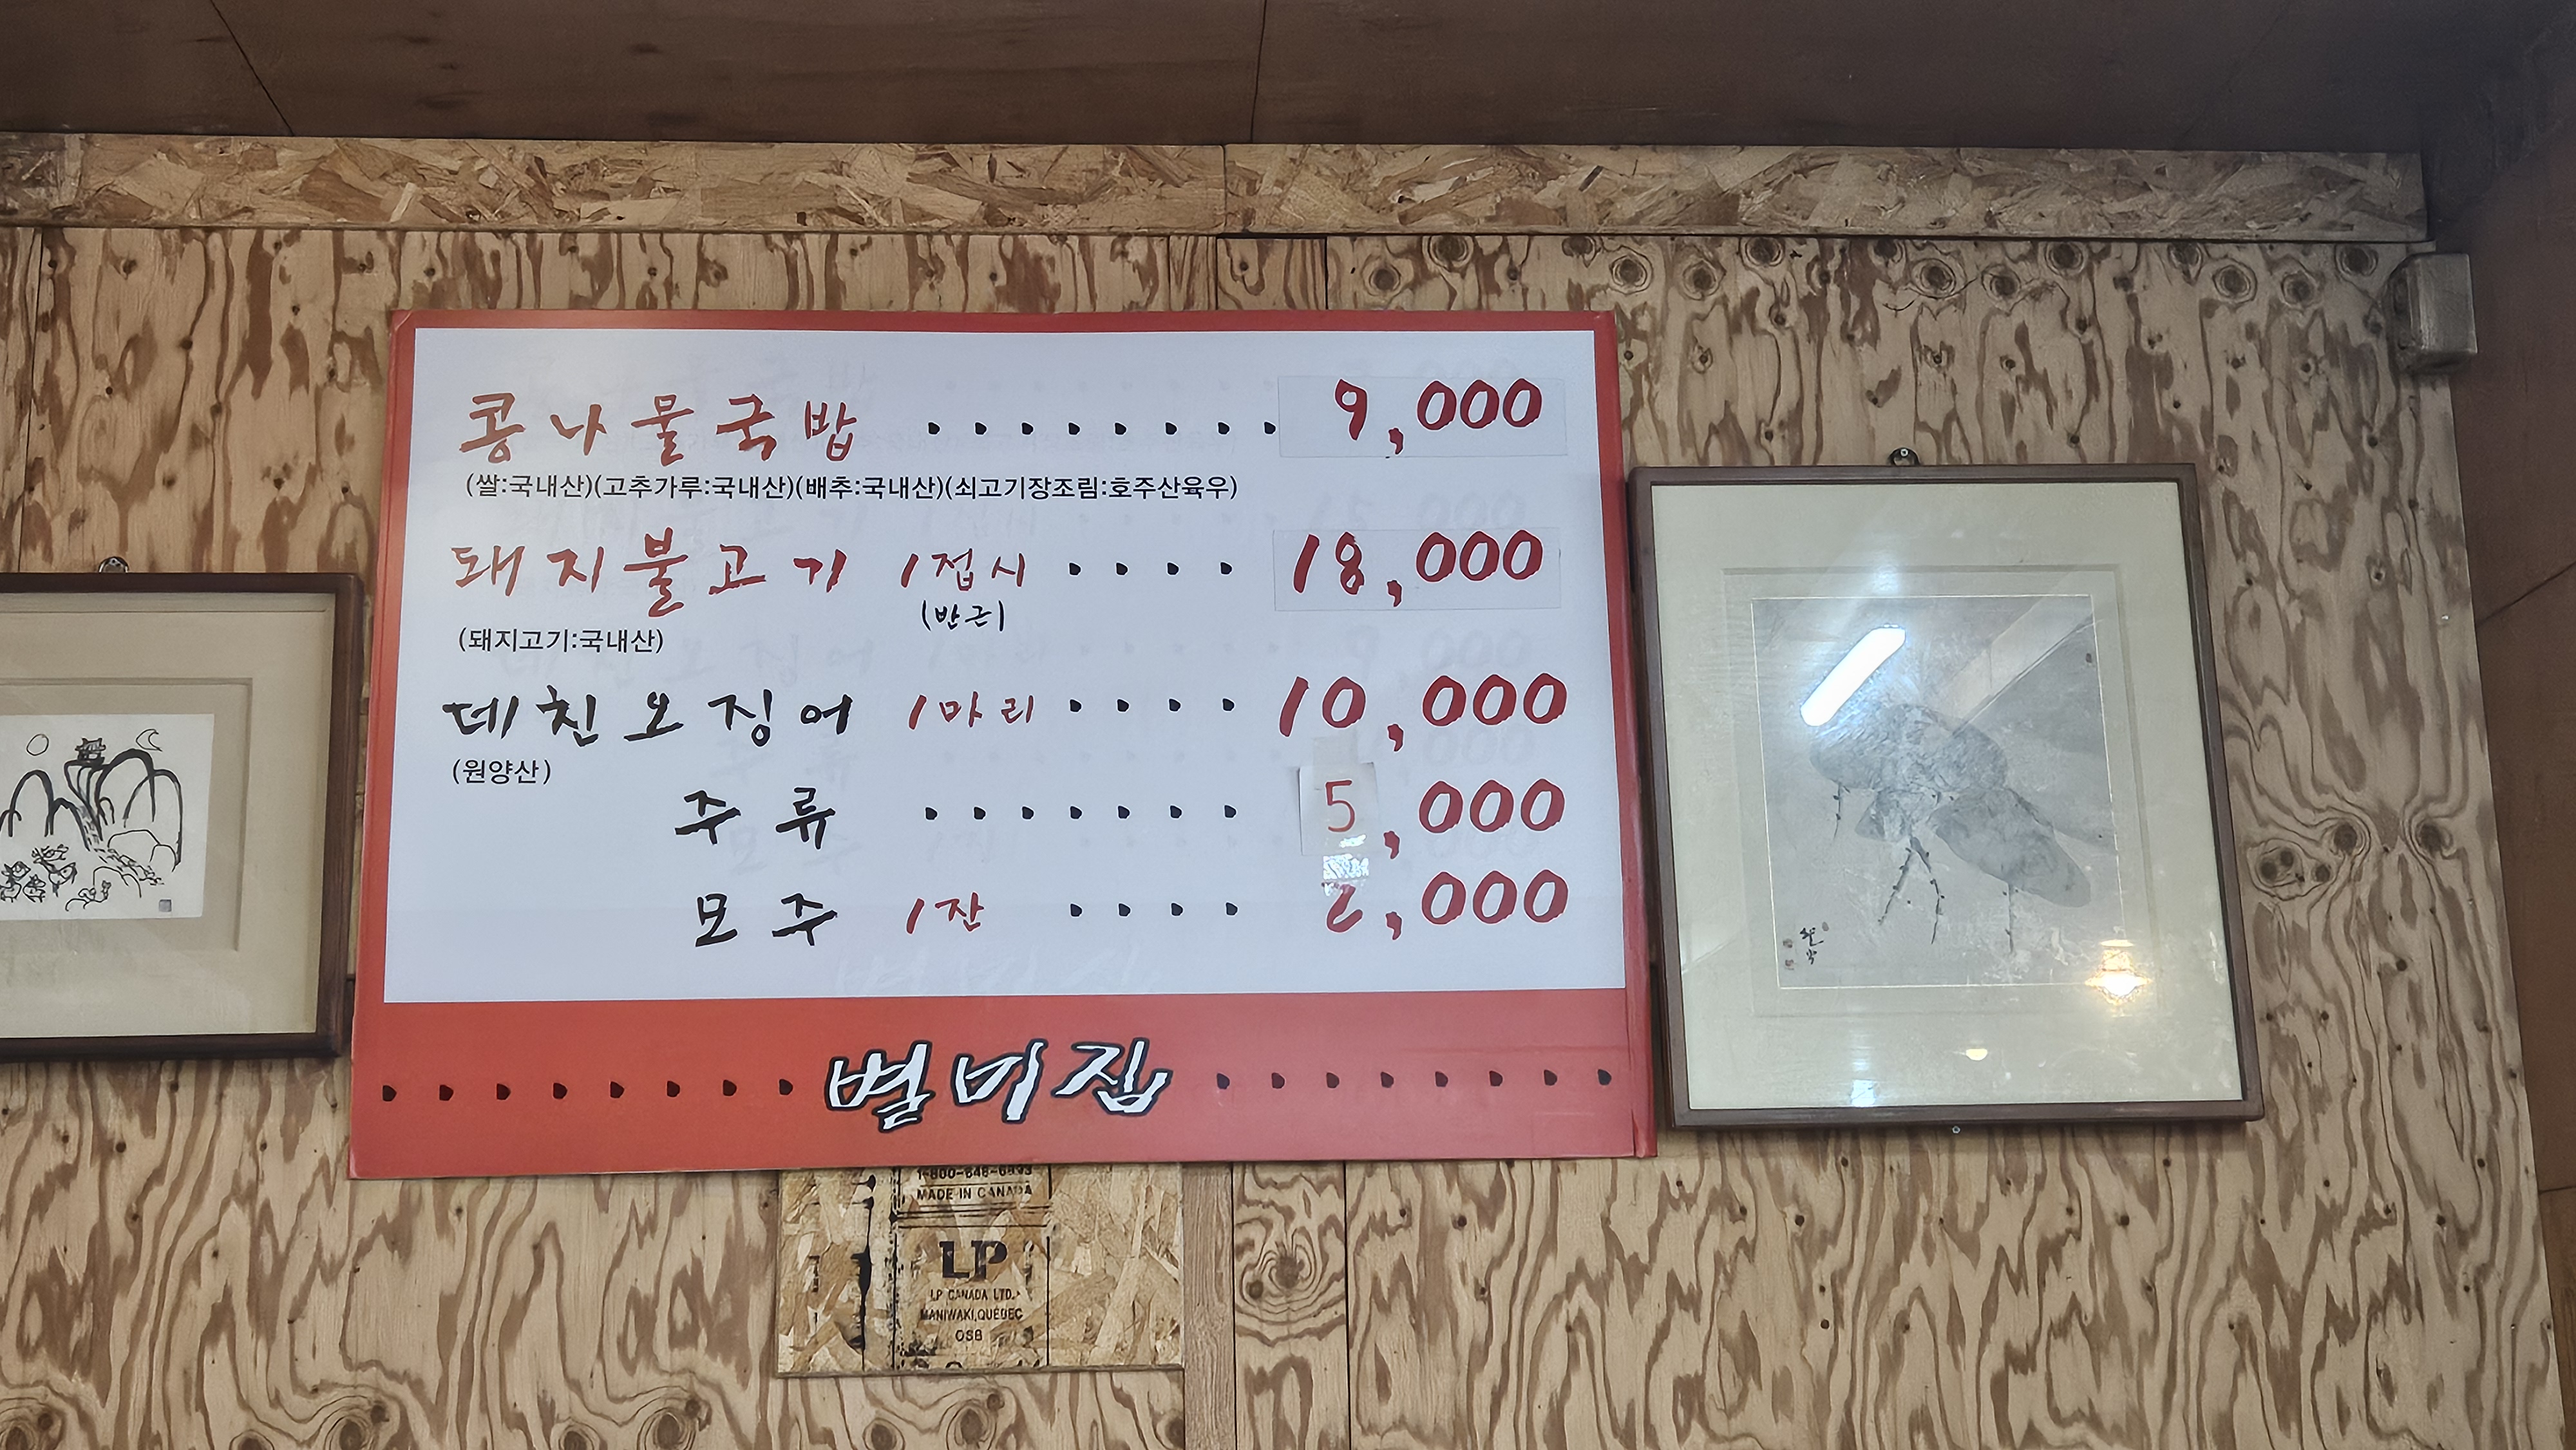 콩나물국밥 ........ 9,000
(쌀:국내산)(고추가루:국내산)(배추:국내산)(쇠고기장조림:호주산육우)
돼지불고기 1접시 .... 18,000
(반근)
(돼지고기:국내산)
데친오징어 1마리 .... 10,000
(원양산)
주류 ....... 5,000
모주 1잔 .... 2,000
별미집
MADE IN CANADA
LP
LP CANADA LTD.
MANIWAKI, QUEBEC
OSB